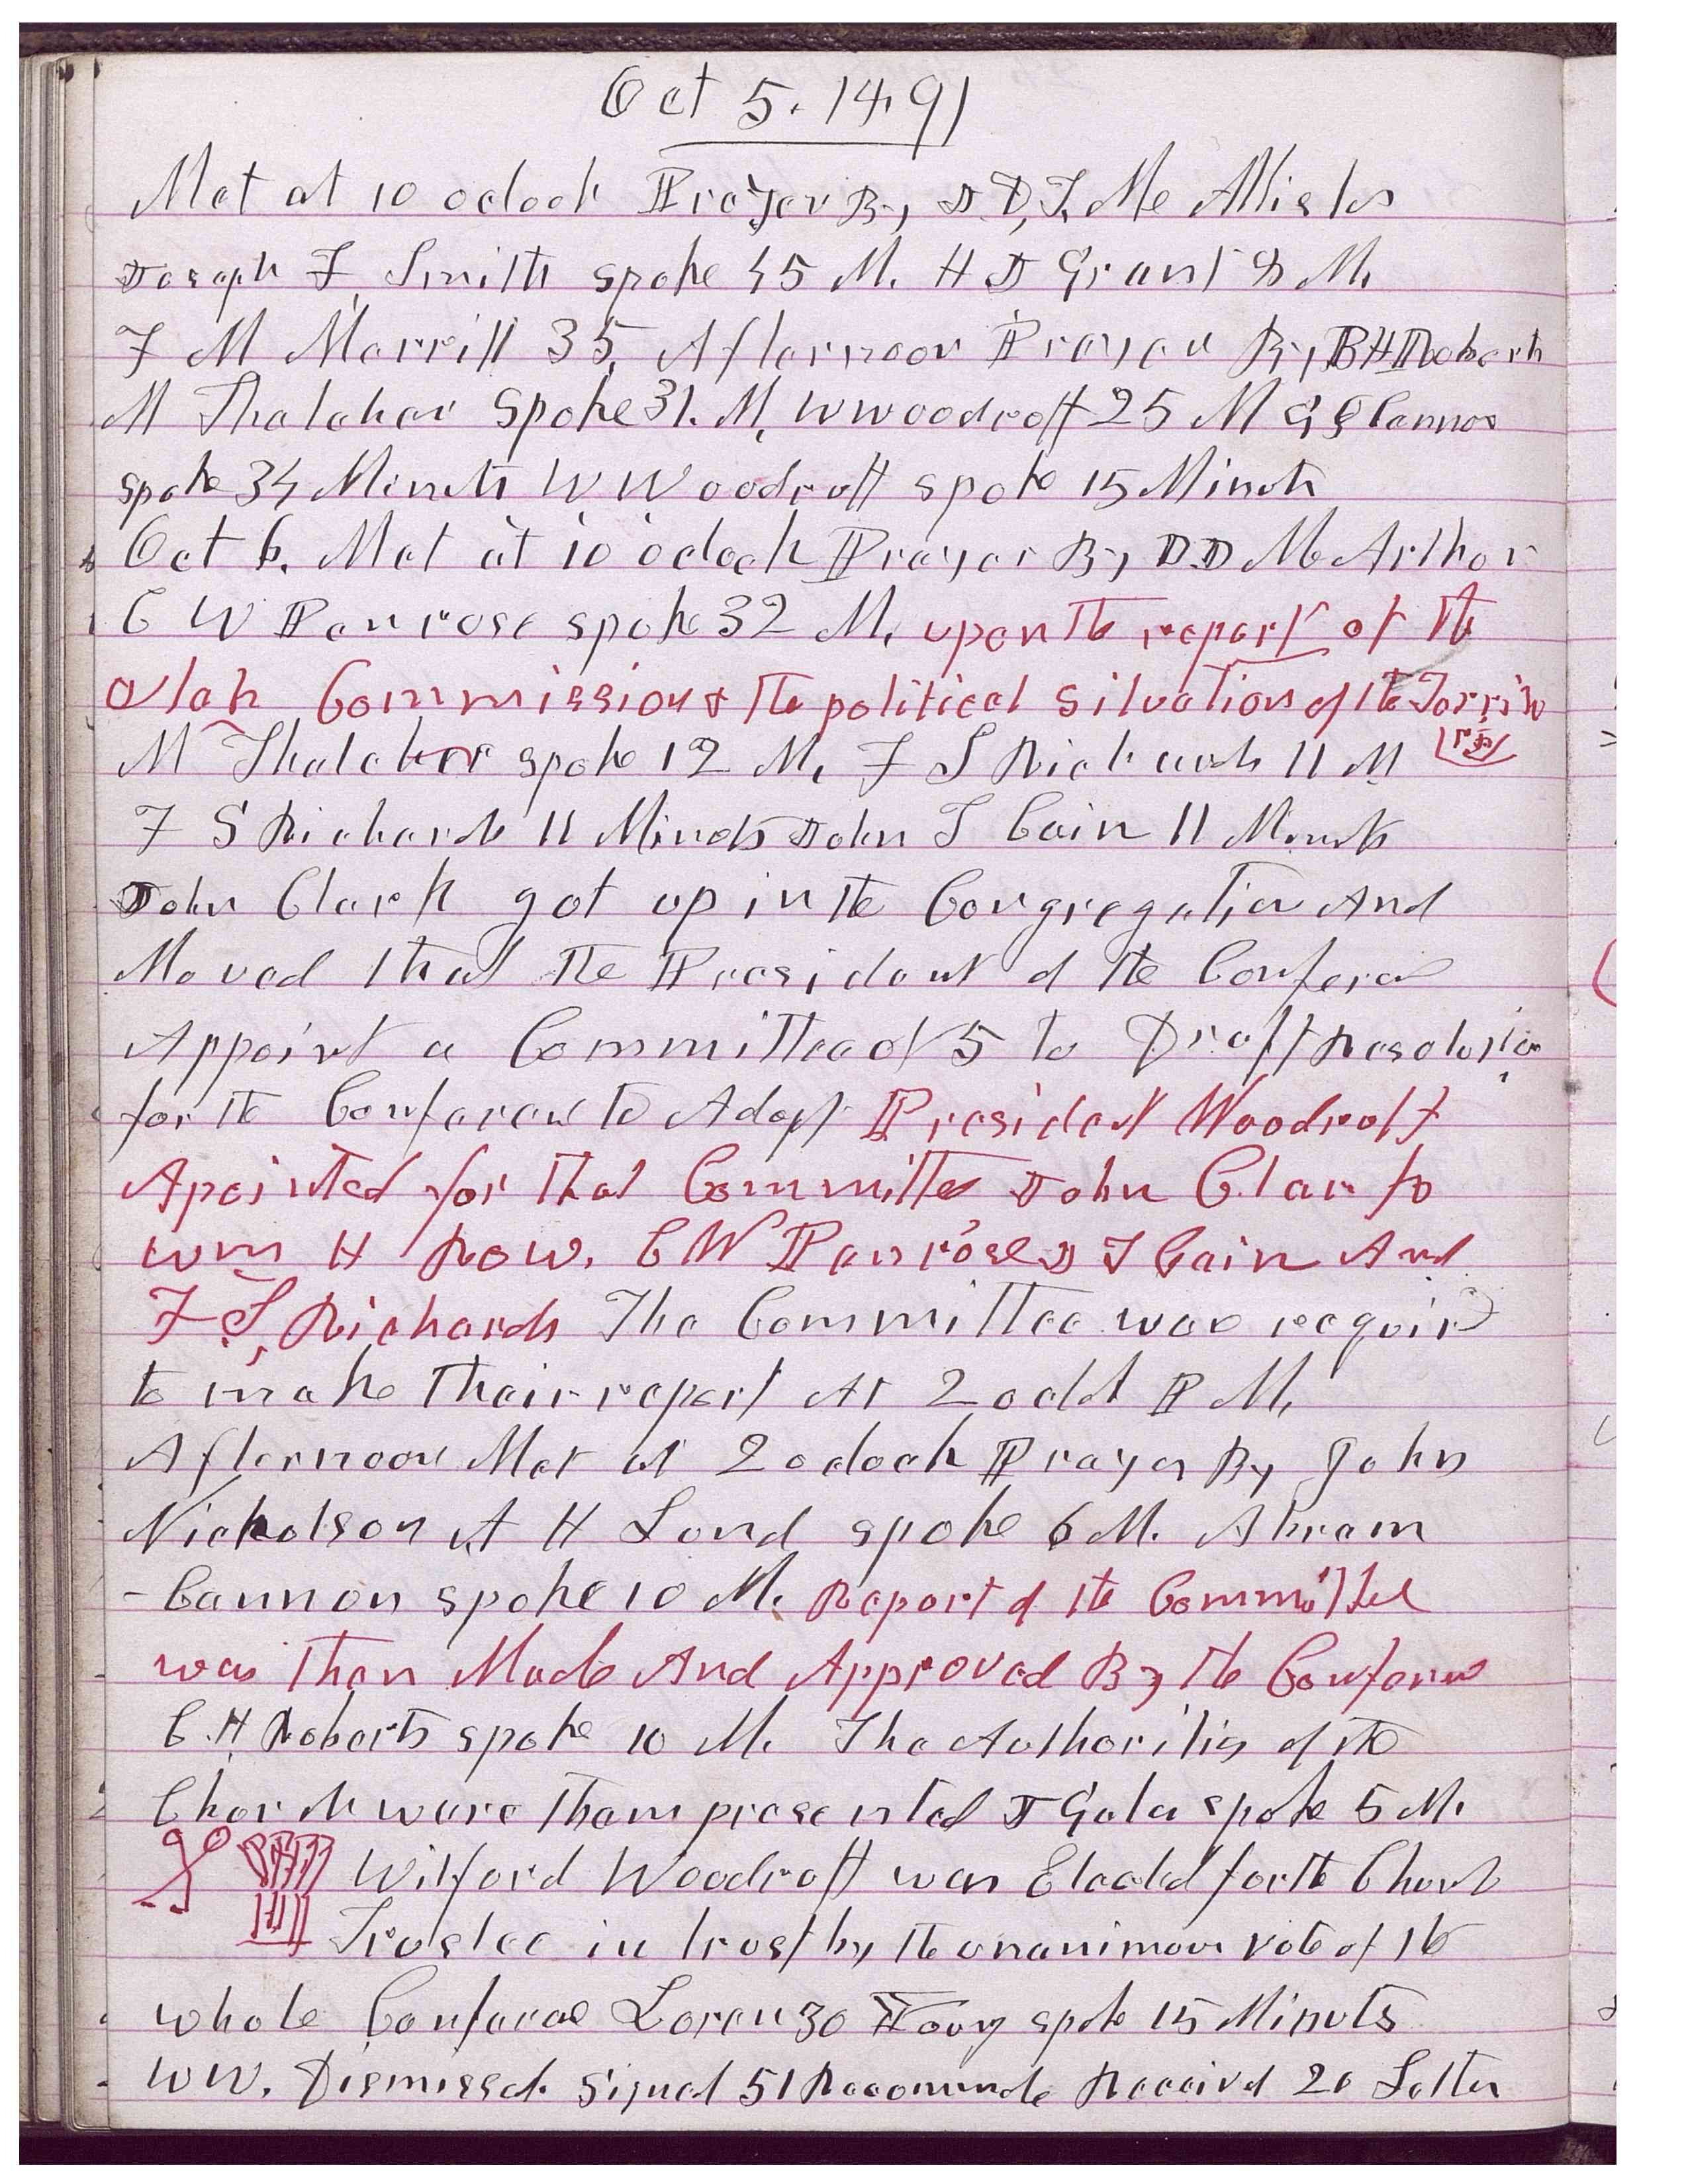 Oct 5. 1891
Met at 10 oclock Prayer By J D T Mc Allister
Joseph F. Smith spoke 45 M. H J Grant 8 M.
F M Merrill 35, Afternoon Prayer By BH Roberts
M Thatcher Spoke 31. M, W Woodruff 25 M G Q Cannon
spoke 34 Minuts W Woodruff spoke 15 Minuts
Oct 6. Met at 10 oclock Prayer By DD McArthor
C W Penrose spoke 32 M. upon the report of the
Utah Commission & the political situation of the Territo
ry
M Thatcher spoke 12 M. F S Richards 11 M
F S Richards 11 Minuts John T Cain 11 Minuts
John Clark got up in the Congregation And
Moved that the President of the Conferce
Appoint a Committee of 5 to Draft Resolution
for the Conference to Adopt President Woodruff
Apointed for that Committee John Clark
Wm H Row. C W Penrose J T Cain And
F S, Richards The Committee was requird
to make their report At 2 oclck P M.
Afternoon Met at 2 oclock Prayer By John
Nicholson A H Lund spoke 6 M. Abram
-Cannon spoke 10 M. Report of the Committee
was then Made And Approved By the Conferenc
B. H Roberts spoke 10 M. The Authorities of the
Church were them presented J Gates spoke 5 M.
Wilford Woodruff was Elected for the Church
Trustee in trust by the unanimous vote of the
whole Conference Lorenzo Snow spoke 15 Minuts
WW. Dismissed. Signed 51 Recommds Received 20 Letters